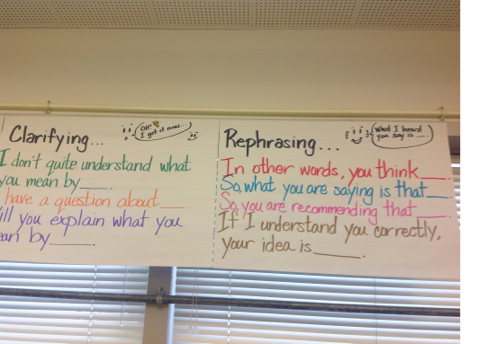 Clarifying...
Oh! I get it now...
I don't quite understand what
you mean by____.
have a question about____
ill you explain what you
an by____.
Rephrasing...
What I heard
you say is...
In other words, you think____.
So, what you are saying is that____.
So, you are recommending that____.
If I understand you correctly,
your idea is____.